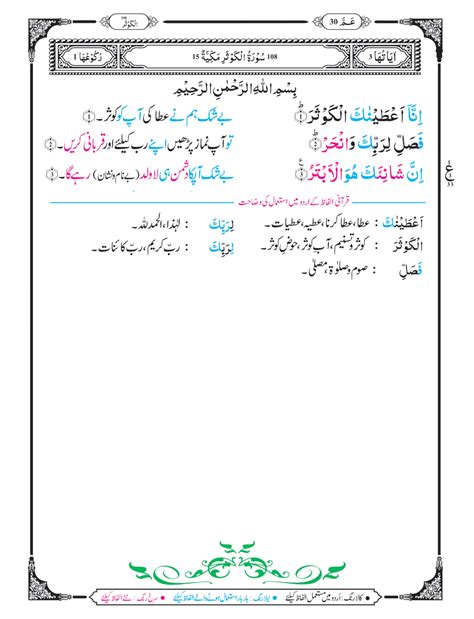 عَمَّ 30
الكوثر
اٰيَاتُهَا 3
108 سُوْرَةُ الْكَوْثَرِ مَكِّيَّةٌ 15
رُكُوْعُهَا 1
بِسْمِ اللّٰهِ الرَّحْمٰنِ الرَّحِيْمِ
اِنَّآ اَعْطَيْنٰكَ الْكَوْثَرَ ۝
بے شک ہم نے عطا کی آپ کو کوثر۔
فَصَلِّ لِرَبِّكَ وَانْحَرْ ۝
تو آپ نماز پڑھیں اپنے رب کیلئے اور قربانی کریں۔
اِنَّ شَانِئَكَ هُوَ الْاَبْتَرُ ۝
بے شک آپکا دشمن ہی لاولد (بے نام و نشان) رہے گا۔
قرآنی الفاظ کے اردو میں استعمال کی وضاحت
اَعْطَيْنٰكَ : عطا، عطا کرنا، عطیہ، عطیات۔
لِرَبِّكَ : لہٰذا، الحمدللہ۔
الْكَوْثَرَ : کوثر و تسنیم، آب کوثر، حوض کوثر۔
لِرَبِّكَ : ربّ کریم، ربّ کائنات۔
فَصَلِّ : صوم و صلوٰۃ، مصلّٰی۔
• کالا رنگ : اُردو میں مستعمل الفاظ کیلئے • نیلا رنگ : بار بار استعمال ہونے والے الفاظ کیلئے • سرخ رنگ : نئے الفاظ کیلئے